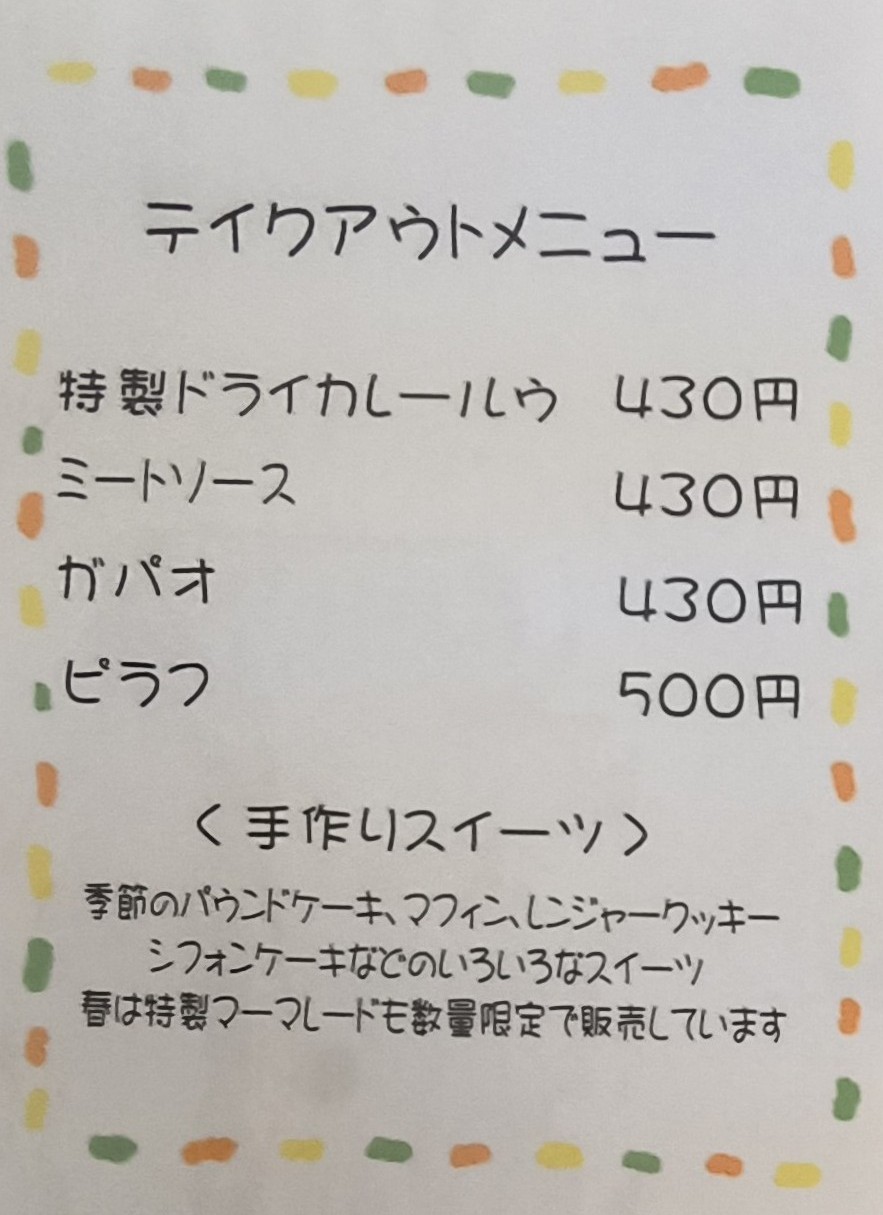 テイクアウトメニュー
特製ドライカレールウ 430円
ミートソース 430円
ガパオ 430円
ピラフ 500円
〈手作りスイーツ〉
季節のパウンドケーキ、マフィン、レンジャークッキー
シフォンケーキなどのいろいろなスイーツ
春は特製マーマレードも数量限定で販売しています